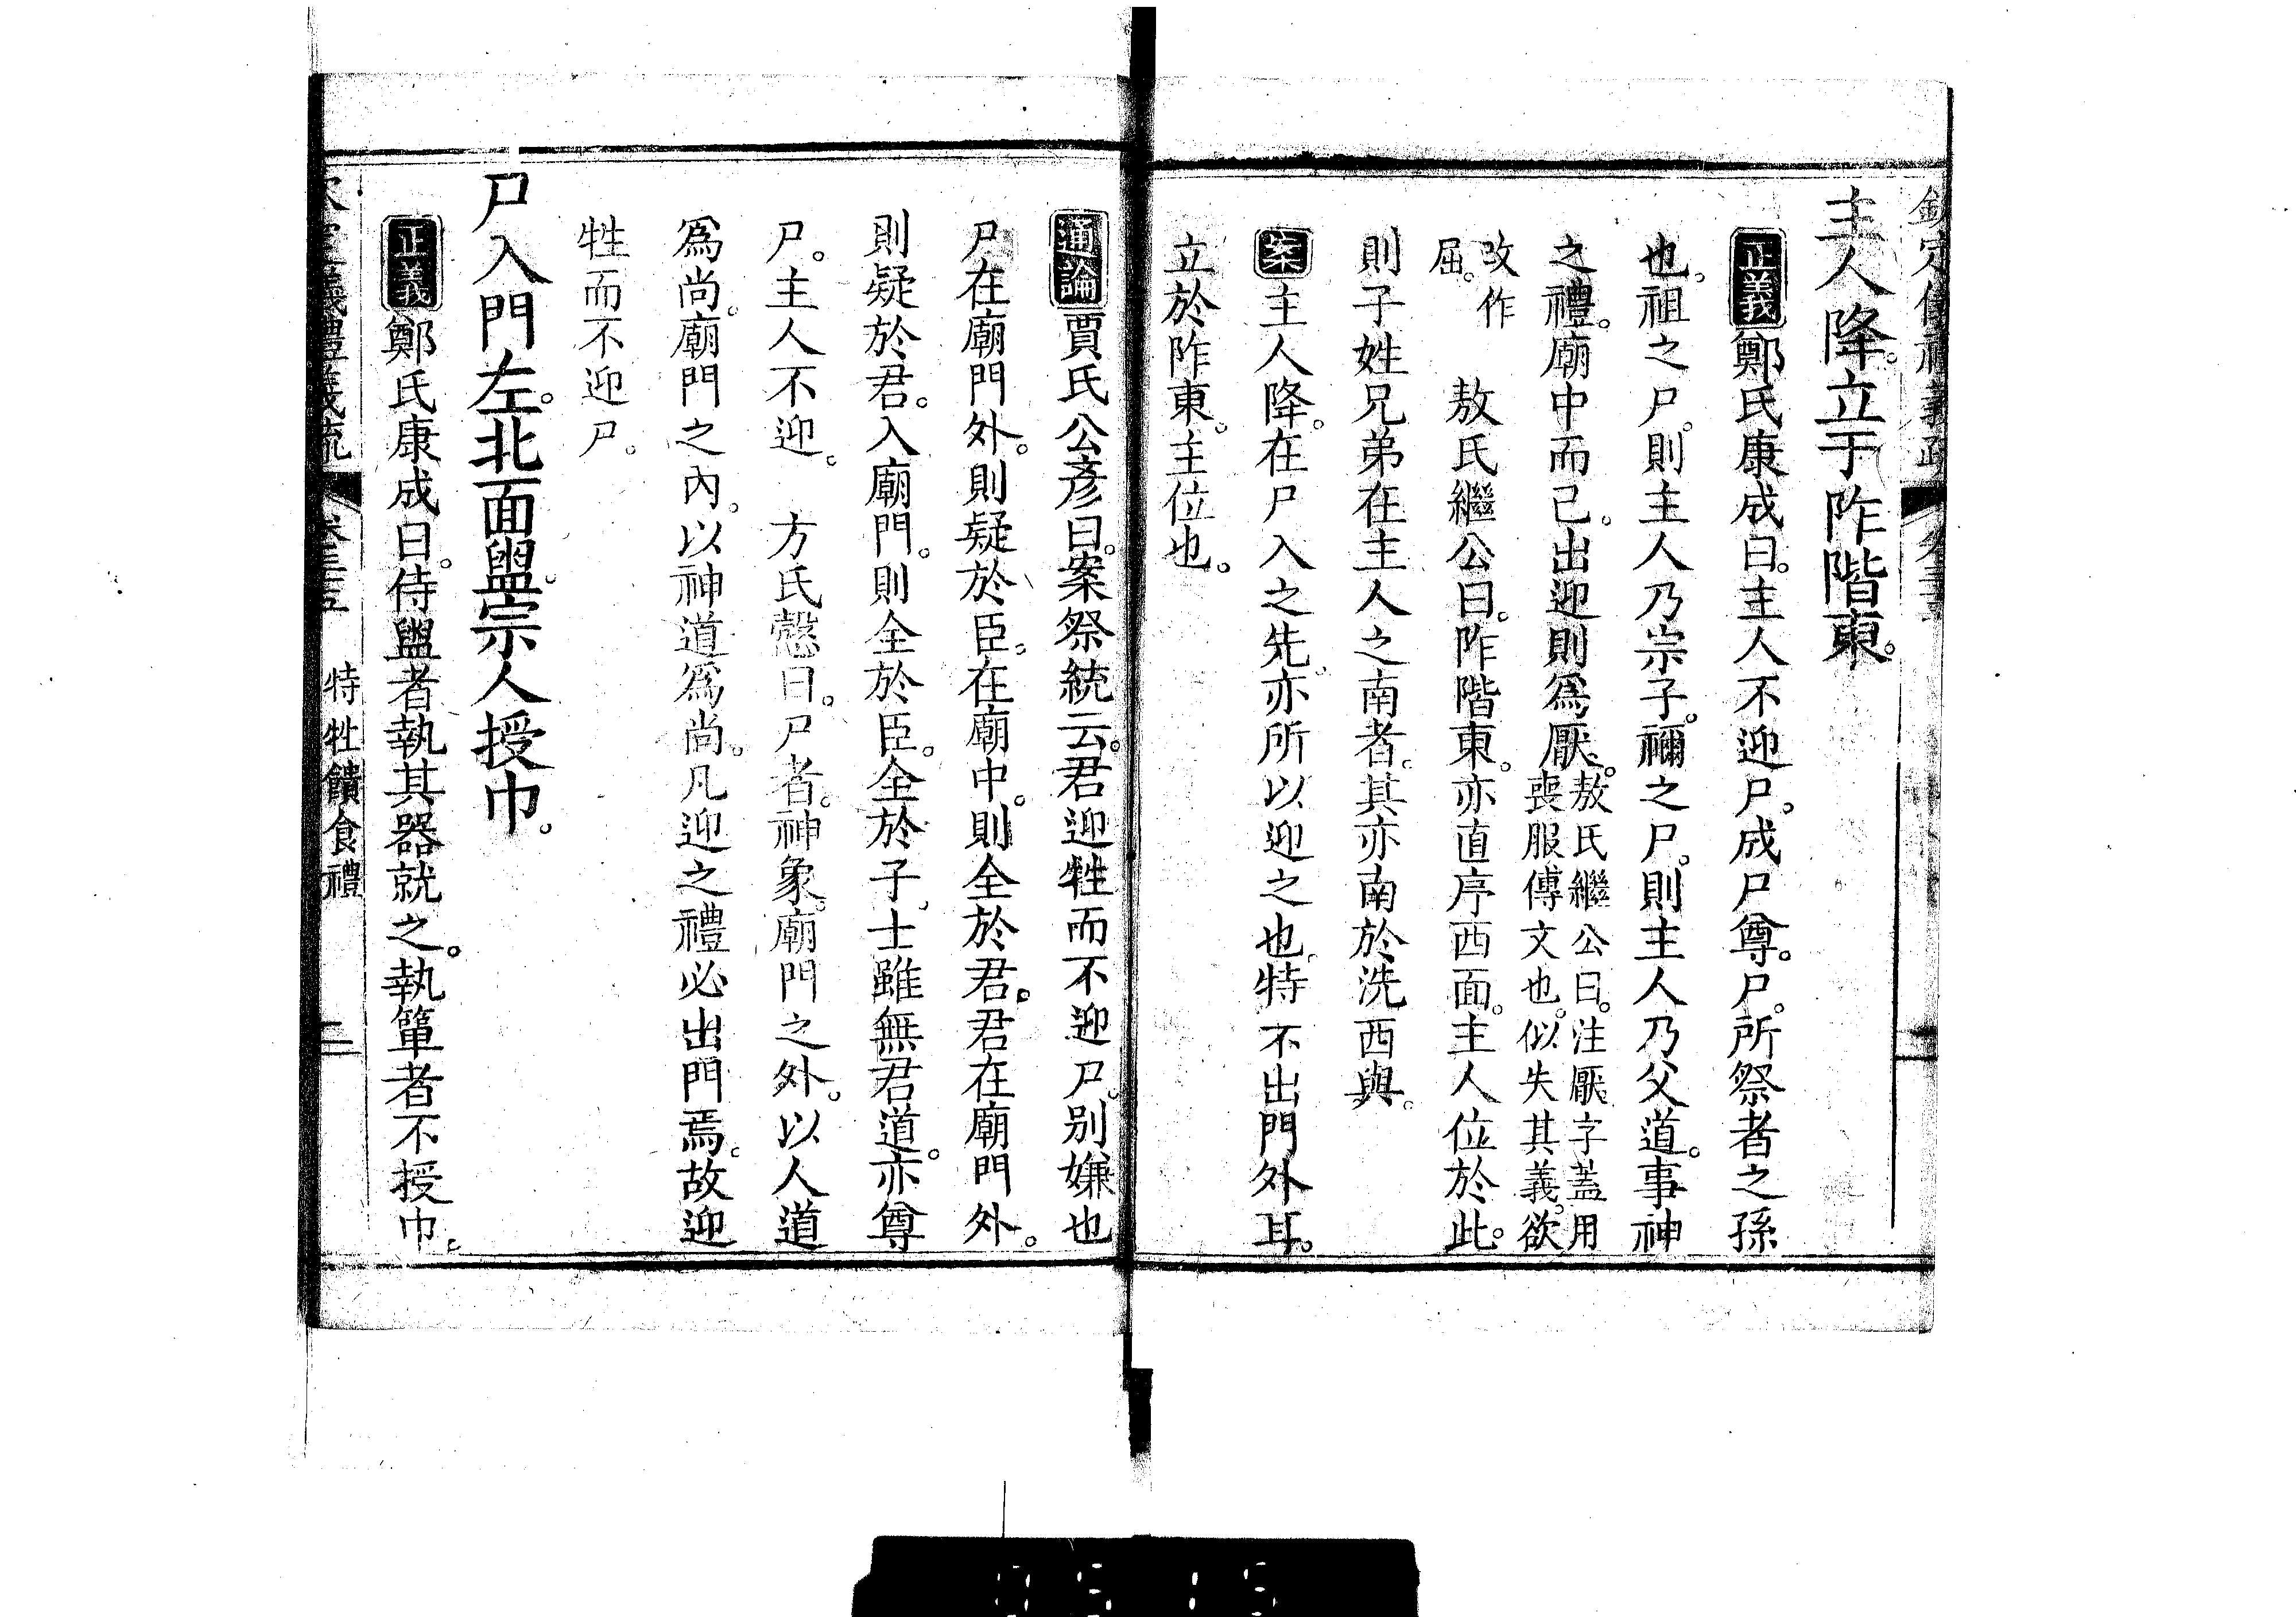 主人降。立于阼階東。
正義鄭氏康成曰。主人不迎尸。成尸尊。尸。所祭者之孫
也。祖之尸。則主人乃宗子。禰之尸。則主人乃父道。事神
之禮。廟中而已。出迎則爲厭。敖氏繼公曰。注厭字蓋用
喪服傳文也。似失其義。欲
改作
屈。
敖氏繼公曰。阼階東。亦直序西面。主人位於此。
則子姓兄弟在主人之南者。其亦南於洗西與。
案主人降。在尸入之先。亦所以迎之也。特不出門外耳。
立於阼東。主位也。
通論賈氏公彥曰。案祭統云。君迎牲而不迎尸。别嫌也
尸在廟門外。則疑於臣。在廟中。則全於君。君在廟門外。
則疑於君。入廟門。則全於臣。全於子。士雖無君道。亦尊
尸。主人不迎。 方氏慤曰。尸者。神象。廟門之外。以人道
爲尚。廟門之內。以神道爲尚。凡迎之禮必出門焉。故迎
牲而不迎尸。
尸入門左。北面盥。宗人授巾。
正義鄭氏康成曰。侍盥者執其器就之。執簞者不授巾。
特牲饋食禮
二